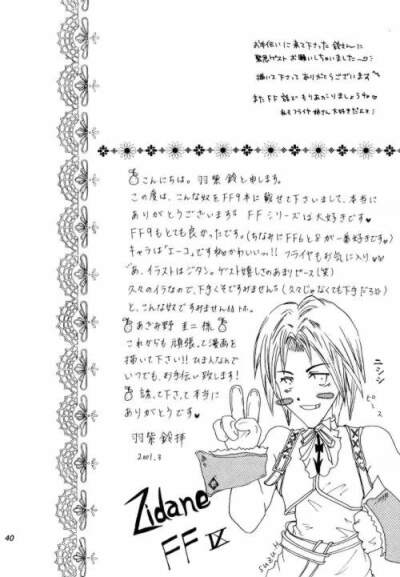 お手伝いに来て下さった 鈴さんに
緊急ゲスト お願いしちゃいました
描いて下さって ありがとうございます
また FF 話で もりあがりましょうね
私もフライヤ姉さん大好きだよ!
こんにちは。羽柴 鈴と申します。
この度は、こんな奴をFF9本に載せて下さいまして、本当に
ありがとうございます FFシリーズは大好きです♥
FF9もとても良かったです。(ちなみにFF6と8が一番好きです♥)
キャラは「エーコ」ですね かわいいっ!! フライヤもお気に入り♥
あ、イラストはジタン。ゲスト嬉しさのあまりピース(笑)
久々のイラなので、下きくそですみません(久々じゃなくても下手だろ)
と、こんな奴ですみません
あざみ野 圭二 様
これからも頑張って漫画を
描いて下さい!! ひま人なんで
いつでも、お手伝い致します!
読んで下さって 本当に
ありがとうです♥
羽柴 鈴 拝
2001.3
ニシシ
ピース
Zidane
FF IX
Suzu
40